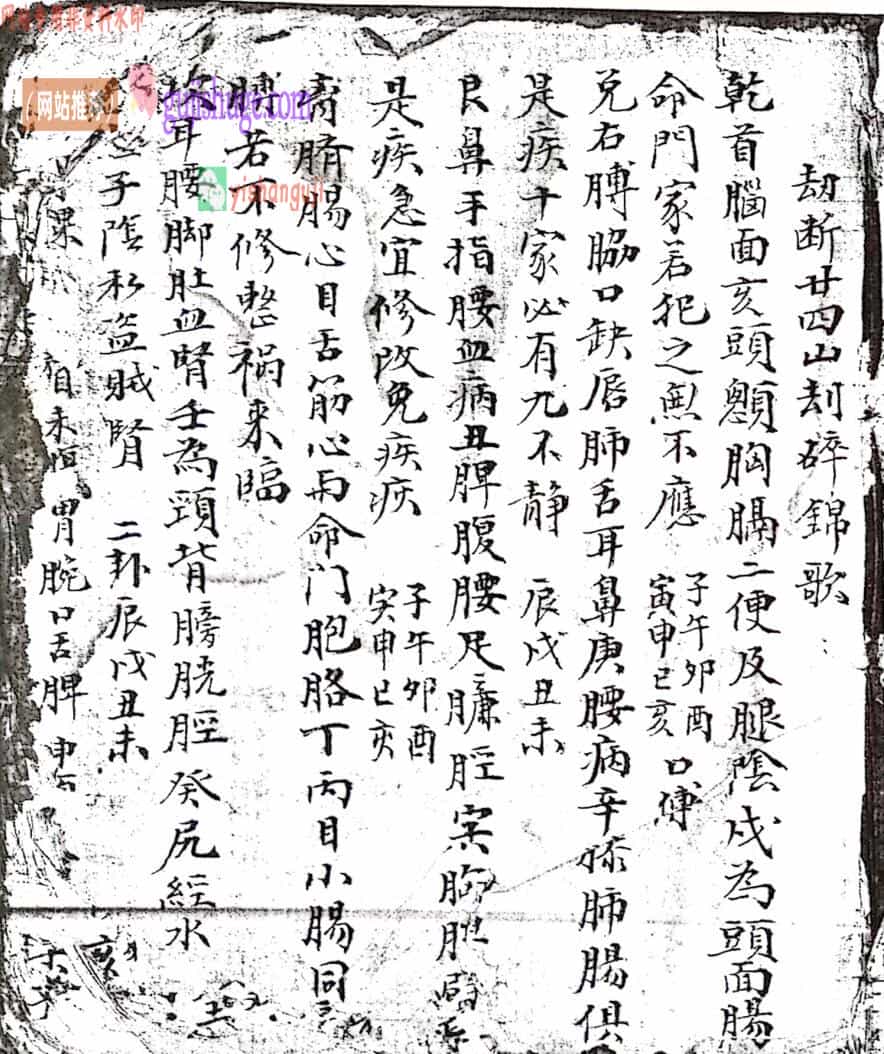 劫断廿四山刦碎錦歌
乾首腦面亥頭顖胸膈二便及腿陰戍為頭面腸
命門家若犯之無不應 子午卯酉 寅申巳亥 口傳
兑右膊脇口缺唇肺舌耳鼻庚腰病辛膝肺腸俱
是疾十家必有九不静 辰戍丑未
艮鼻手指腰血病丑脾腹腰足臁脛寅胸胆
是疾急宜修改免疾疢 子午卯酉 寅申巳亥
膏腸心目舌筋心丙命门胞胳丁丙目小腸同
若不修整禍来臨
耳腰脚肚血腎壬為頸背膀胱脛癸尻經水
子陰私盗賊腎 二卦辰戍丑未
課 未 胃腕口舌脾 申
亥
(网站推荐)
guishuge.com
yishanguji